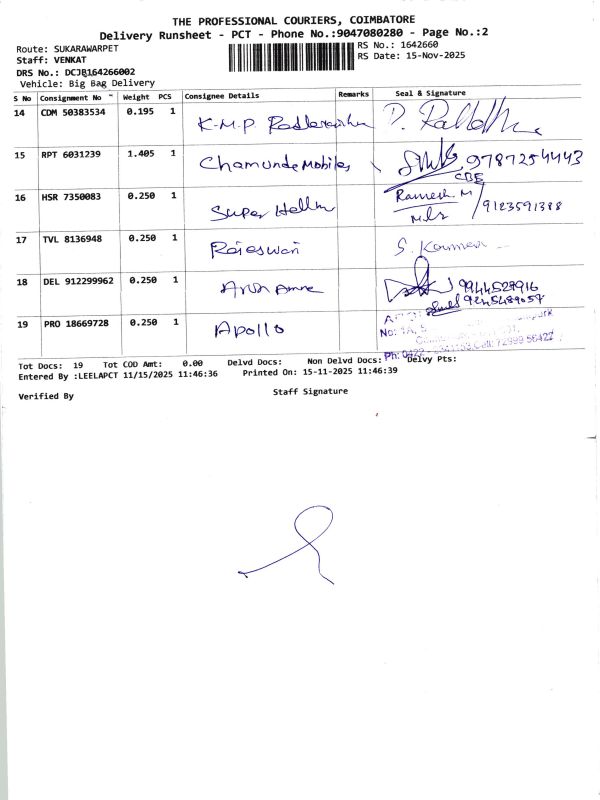 THE PROFESSIONAL COURIERS, COIMBATORE
Delivery Runsheet - PCT - Phone No.:9047080280 - Page No.:2
Route: SUKARAWARPET
RS No.: 1642660
Staff: VENKAT
RS Date: 15-Nov-2025
DRS No.: DCJB164266002
Vehicle: Big Bag Delivery
S No Consignment No Weight PCS Consignee Details Remarks Seal & Signature
14 CDM 50383534 0.195 1 K.M.P.
15 RPT 6031239 1.405 1 Chamunde Mobiles 9787254443
CBE
16 HSR 7350083 0.250 1 Super Ramesh. M
9123591388
17 TVL 8136948 0.250 1 Rajeswari S.
18 DEL 912299962 0.250 1 9944529916
9245689057
19 PRO 18669728 0.250 1 Apollo
No: 1A, 5
Cell: 72999 56422
Ph: 0422
Tot Docs: 19 Tot COD Amt: 0.00 Delvd Docs: Non Delvd Docs: Delvy Pts:
Entered By :LEELAPCT 11/15/2025 11:46:36 Printed On: 15-11-2025 11:46:39
Verified By Staff Signature